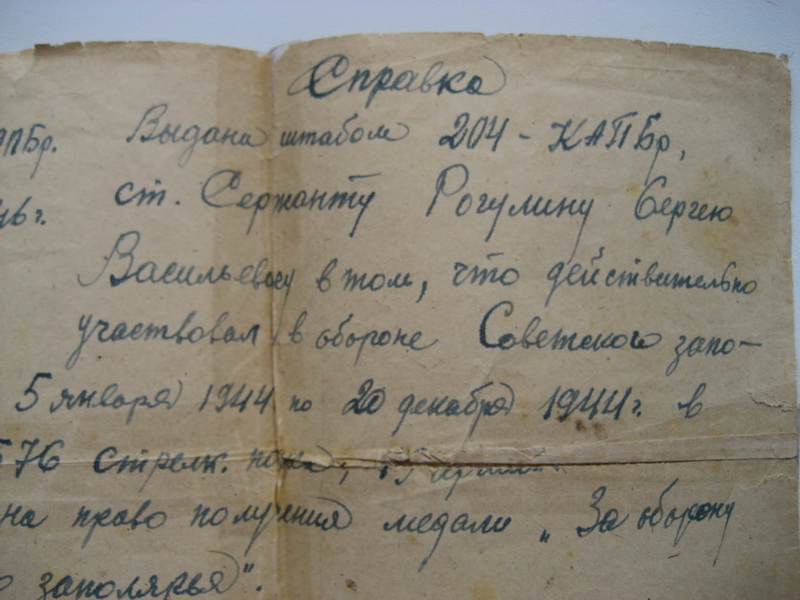 Справка
АПБр. Выдана штабом 204 - КАПБр,
46 г. ст. Сержанту Рогулину Сергею
Васильевичу в том, что действительно
участвовал в обороне Советского запо-
5 января 1944 по 20 декабря 1944 г. в
576 стрелк. полка,
на право получения медали „За оборону
о заполярья".